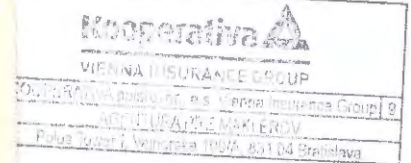 Kooperativa
VIENNA INSURANCE GROUP
KOOPERATIVA poisťovňa, a.s. Vienna Insurance Group 9
AGENTÚRA PRE MAKLÉROV
Polus Tower I, Vajnorská 100/A, 831 04 Bratislava